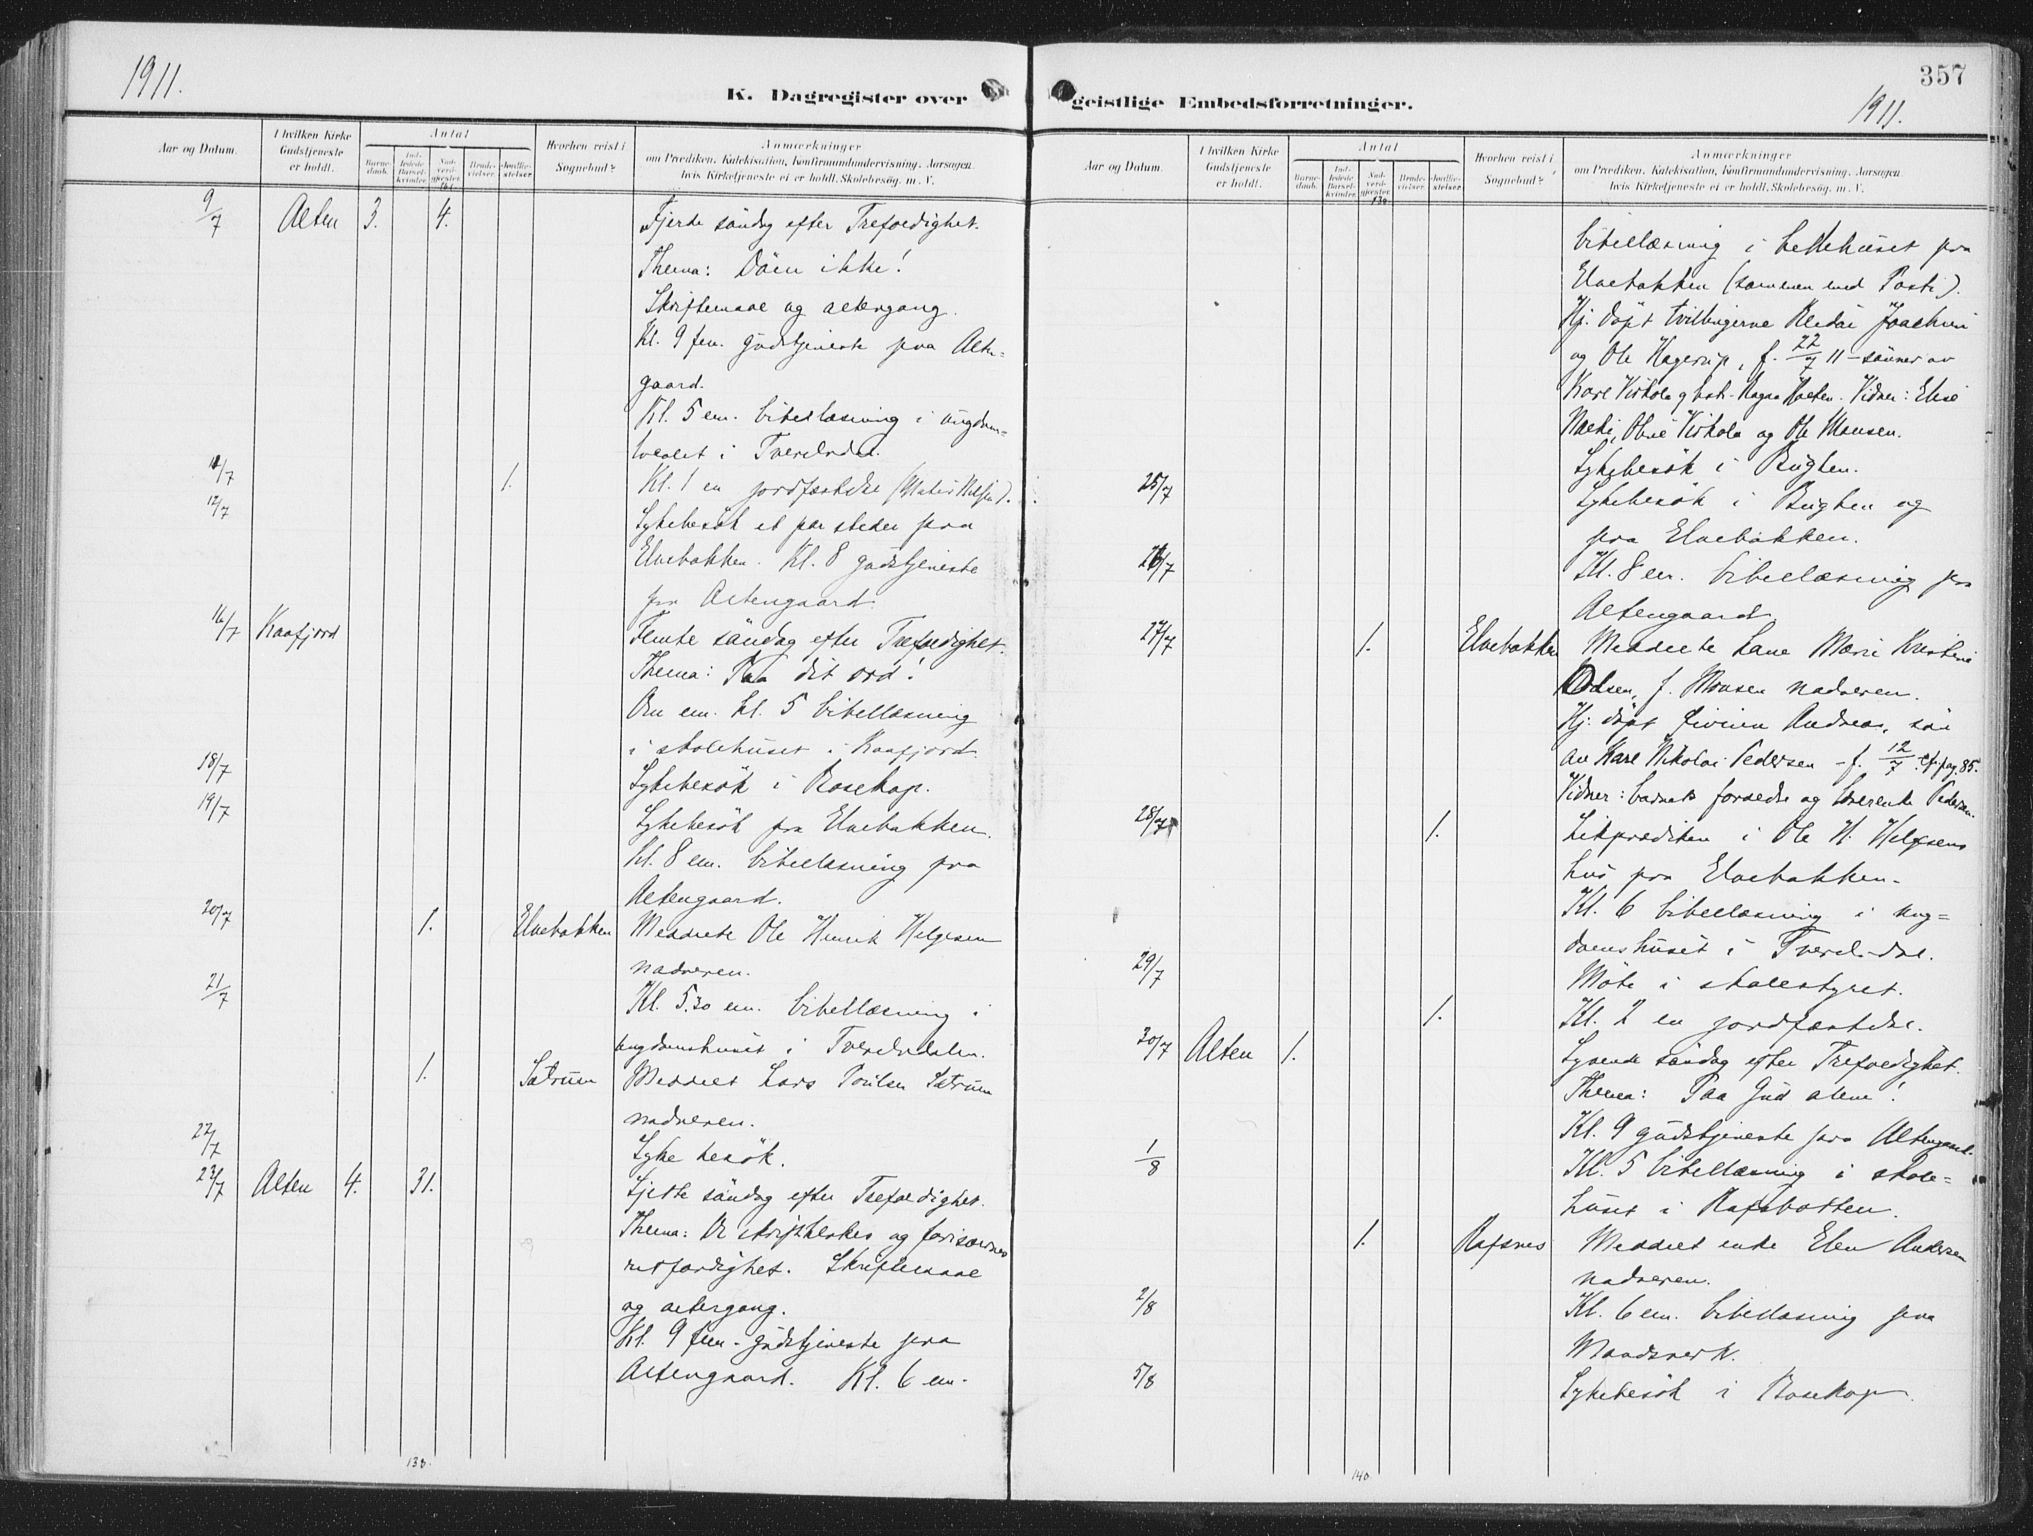 1911.
K. Dagregister over
Aar og Datum.
I hvilken Kirke Gudstjeneste er holdt.
Antal
Barne-daab.
Ind-ledede Barsel-kvinder.
Nad-verd-gjester.
Brude-vielser.
Jordfæ-stelser.
Hvorhen reist i Sognebud?
Anmærkninger
om Prædiken, Katekisation, Konfirmandundervisning, Aarsagen
hvis Kirketjeneste ei er holdt, Skolebesøg, m. V.
9/7 Alten 3. 4. Fjerde söndag efter Trefoldighet.
Thema: Döm ikke!
Skriftemaal og altergang.
Kl. 9 fm. gudstjeneste paa Alten-
gaard.
Kl. 5 em. bibellæsning i ungdoms-
lokalet i Tverelvdal.
11/7 1. Kl. 1 em jordfæstelse
12/7 Sykebesök et par steder paa
Elvebakken. Kl. 8 gudstjeneste
paa Altengaard.
16/7 Kaafjord Femte söndag efter Trefoldighet.
Thema: Paa dit ord!
Om em. kl. 5 bibellæsning
i skolehuset i Kaafjord.
18/7 Sykebesök i Bosekop.
19/7 Sykebesök paa Elvebakken.
Kl. 8 em. bibellæsning paa
Altengaard.
20/7 1. Elvebakken Meddelte Ole Henrik Helgesen
nadveren.
21/7 Kl. 5.30 em. bibellæsning i
ungdomshuset i Tverelvdalen.
1. Sætrum Meddelt Lars Poulsen Sætrum
nadveren.
22/7 Sykebesök.
23/7 Alten 4. 31. Sjette söndag efter Trefoldighet.
Thema: De skriftklokes og farisæernes
retfærdighet. Skriftemaal
og altergang.
Kl. 9 fm. gudstjeneste paa
Altengaard. Kl. 6 em.
138.
357
geistlige Embedsforretninger.
1911.
Aar og Datum.
I hvilken Kirke Gudstjeneste er holdt.
Antal
Barne-daab.
Ind-ledede Barsel-kvinder.
Nad-verd-gjester.
Brude-vielser.
Jordfæ-stelser.
Hvorhen reist i Sognebud?
Anmærkninger
om Prædiken, Katekisation, Konfirmandundervisning, Aarsagen
hvis Kirketjeneste ei er holdt, Skolebesøg, m. V.
138
bibellæsning i bedehuset paa
Elvebakken (sammen med Posti).
Hj. döpt tvillingerne Joachim
og Ole Hagerup, f. 22/7 11 - sönner av
Karl Virkola Vidner: Elise
Virkola og Ole Monsen.
Sykebesök i Bugten.
25/7 Sykebesök i Bugten og
paa Elvebakken.
26/7 Kl. 8 em. bibellæsning paa
Altengaard
27/7 1. Elvebakken Meddelte Lane Marie Kristine
Olsen, f. Monsen nadveren.
Hj. döpt Andreas, sön
av Karl Nikolai Pedersen - f. 12/7. Cfr. pag. 85.
Vidner: barnets forældre og Pedersen.
28/7 1. Likprædiken i Ole H. Helgesens
hus paa Elvebakken.
Kl. 6 bibellæsning i ung-
domshuset i Tverelvdal.
29/7 Möte i skolestyret.
1. Kl. 2 em jordfæstelse.
30/7 Alten 1. Syvende söndag efter Trefoldighet.
Thema: Paa Gud alene!
Kl. 9 gudstjeneste paa Altengaard.
1/8 Kl. 5 bibellæsning i skole-
huset i Rafsbotten.
1. Rafsnes Meddelt enke Elen Andersen
nadveren.
2/8 Kl. 6 em. bibellæsning paa
Mondsverk.
5/8 Sykebesök i Bosekop.
140.